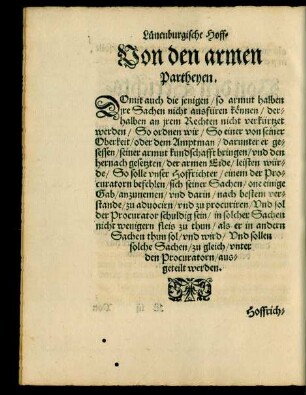 Lünenburgische Hoff-
Von den armen
Partheyen.
DOmit auch die jenigen / so armut halben
jre Sachen nicht ausfüren können / der-
halben an jrem Rechten nicht verkürtzet
werden / So ordnen wir / So einer von seiner
Oberkeit / oder dem Amptman / darunter er ge-
sessen / seiner armut kundschafft bringen / vnd den
hernach gesetzten / der armen Eide / leisten wür-
de / So solle vnser Hoffrichter / einem der Pro-
curatorn beschlen / sich seiner Sachen / one einige
Gab / anzunemen / vnd darin / nach bestem ver-
stande / zu aduociren / vnd zu procuriren / Vnd sol
der Procurator schuldig sein / in solcher Sachen
nicht wenigern fleis zu thun / als er in andern
Sachen thun sol / vnd wird / Vnd sollen
solche Sachen / zu gleich / vnter
den Procuratorn / aus-
geteilt werden.
Hoffrich-